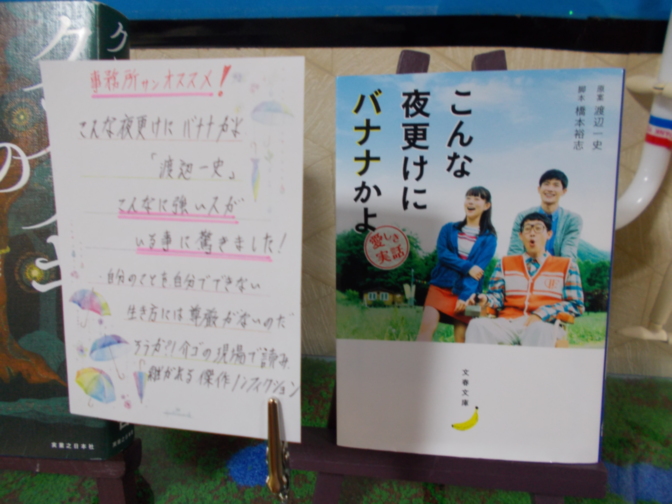 事務所サンオススメ!
こんな夜更けにバナナかよ
「渡辺一史」
こんなに強い人が
いる事に驚きました!
自分のことを自分でできない
生き方には尊厳がないのだ
ろうか?!介ゴの現場で読み
継がれる傑作ノンフィクション
こんな
夜更けに
バナナかよ
愛しき
実話
原案 渡辺一史
脚本 橋本裕志
文春文庫
実業之日本社